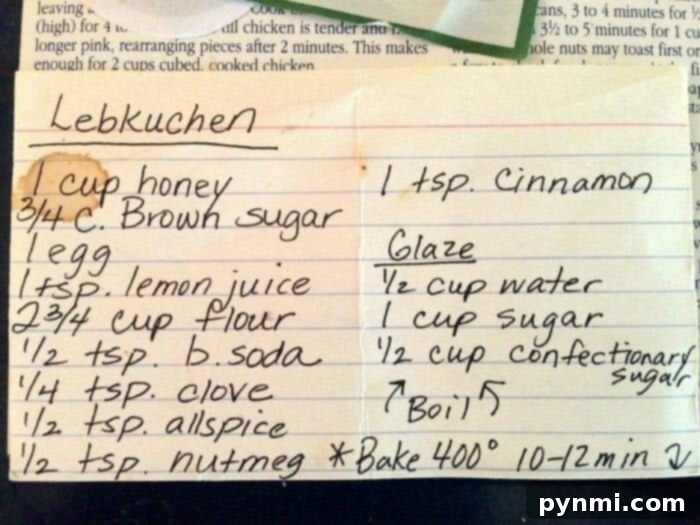 leaving
(high) for 4 chicken is tender and
longer pink, rearranging pieces after 2 minutes. This makes
enough for 2 cups cubed, cooked chicken.
3 to 4 minutes for
3½ to 5 minutes for 1
nuts may toast first or
Lebkuchen
1 cup honey
3/4 c. Brown sugar
1 egg
1 tsp. lemon juice
2 3/4 cup flour
1/2 tsp. b. soda
1/4 tsp. clove
1/2 tsp. allspice
1/2 tsp. nutmeg
1 tsp. Cinnamon
Glaze
1/2 cup water
1 cup sugar
1/2 cup confectionary
sugar
Boil
*Bake 400° 10-12 min
pynmi.com